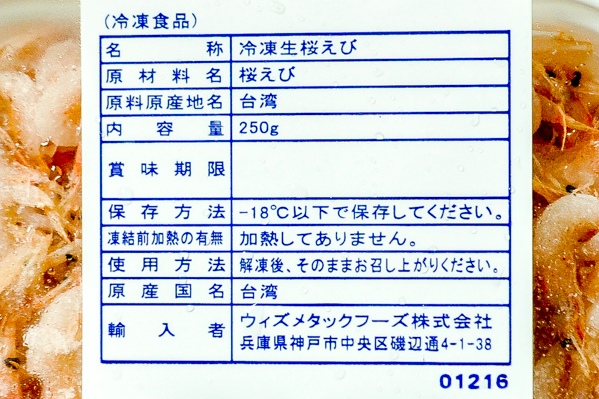 (冷凍食品)
名称 冷凍生桜えび
原材料名 桜えび
原料原産地名 台湾
内容量 250g
賞味期限
保存方法 -18℃以下で保存してください。
凍結前加熱の有無 加熱してありません。
使用方法 解凍後、そのままお召し上がりください。
原産国名 台湾
輸入者 ウィズメタックフーズ株式会社
兵庫県神戸市中央区磯辺通4-1-38
01216